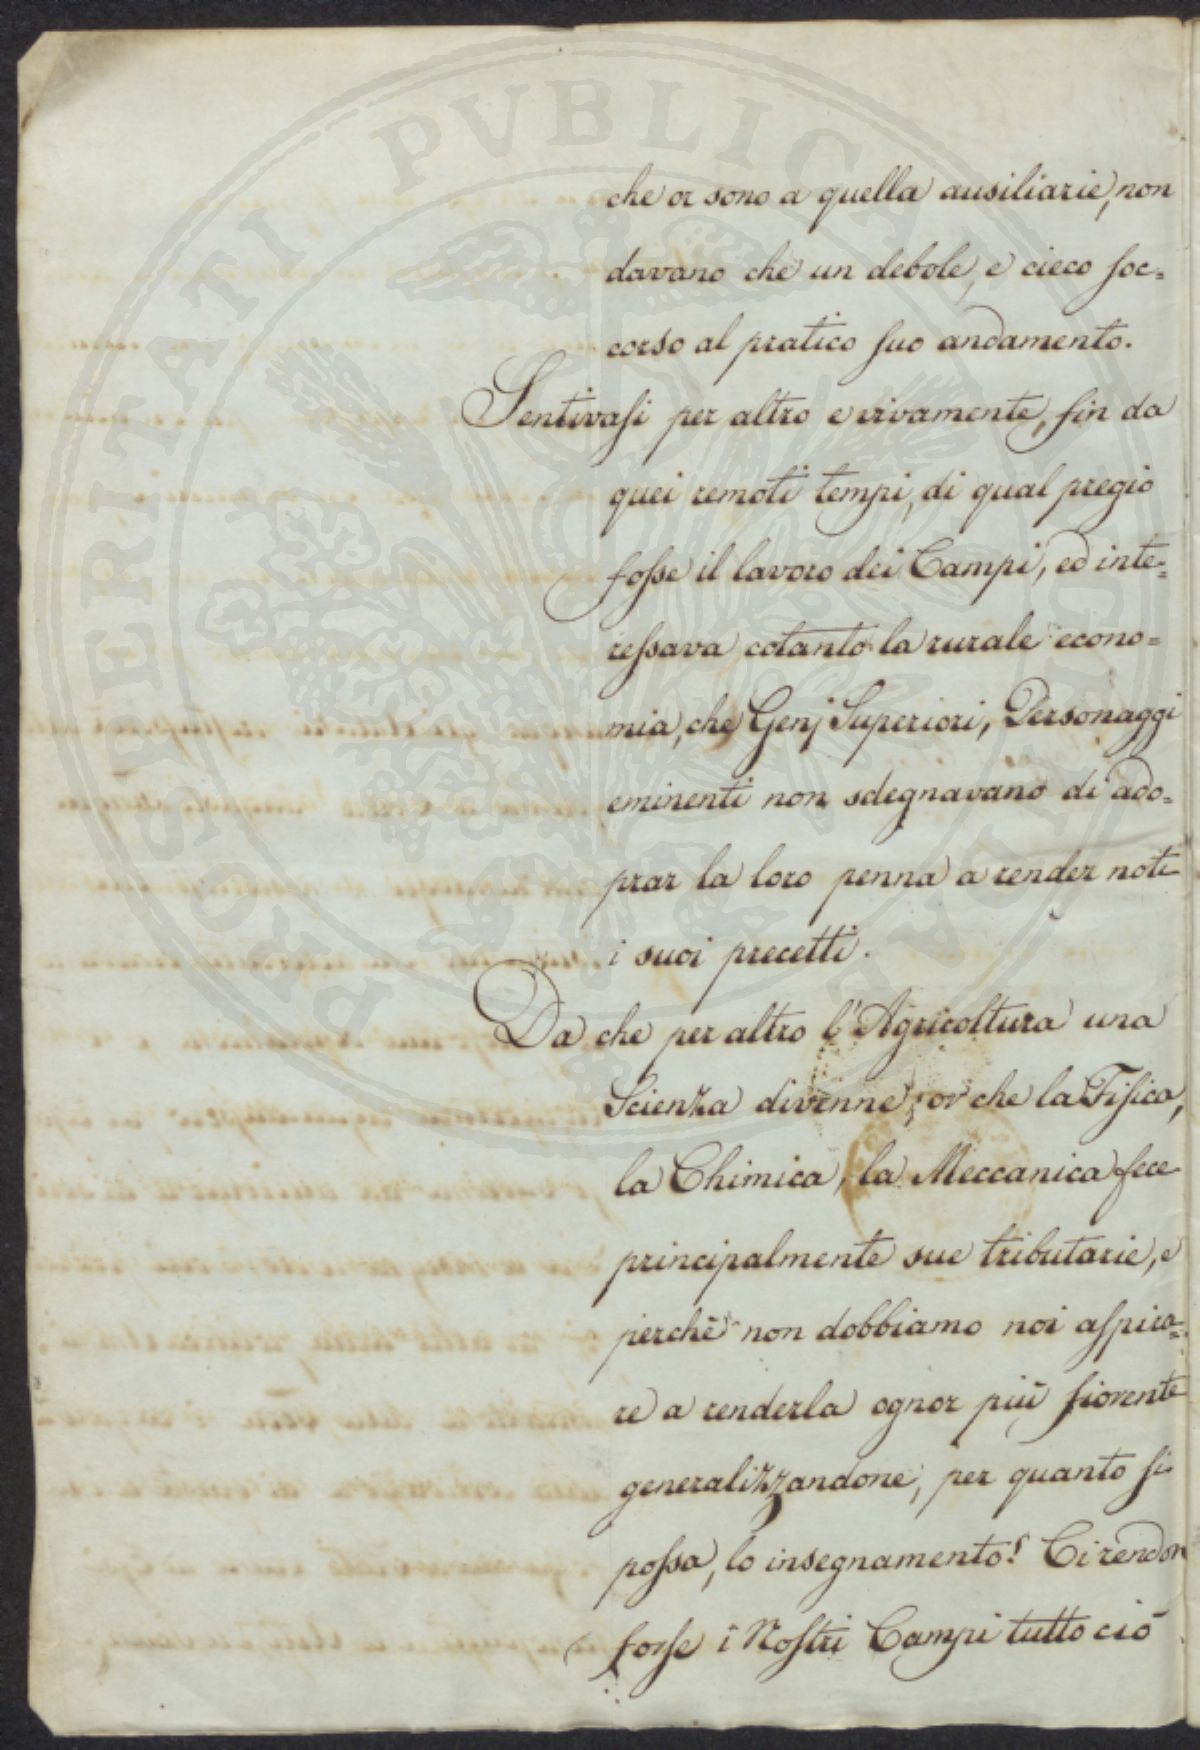 che or sono a quella ausiliarie, non
davano che un debole, e cieco soc=
corso al pratico suo andamento.
Sentivasi per altro e vivamente, fin da
quei remoti tempi, di qual pregio
fosse il lavoro dei Campi, ed inte=
ressava cotanto la rurale econo=
mia, che Genj Superiori, Personaggi
eminenti non sdegnavano di ado=
prar la loro penna a render noti
i suoi precetti.
Da che per altro l'Agricoltura una
Scienza divenne, or che la Fisica,
la Chimica, la Meccanica fece
principalmente sue tributarie, e
perchè non dobbiamo noi aspira=
re a renderla ognor più fiorente
generalizzandone, per quanto si
possa, lo insegnamento! Ci rendon
forse i Nostri Campi tutto ciò
PROSPERITATI PVBLICAE